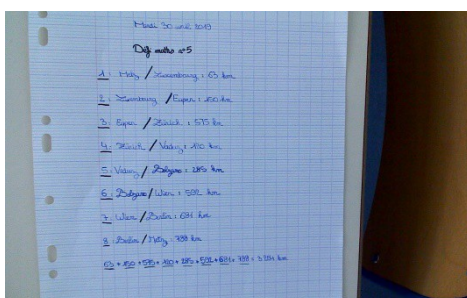 Mardi 30 avril 2019
Défi maths n°5
1: Metz / Luxembourg : 63 km
2: Luxembourg / Eupen : 150 km
3: Eupen / Zürich : 575 km
4: Zürich / Vaduz : 120 km
5: Vaduz / Bolzano : 285 km
6: Bolzano / Wien : 592 km
7: Wien / Berlin : 681 km
8: Berlin / Metz : 798 km